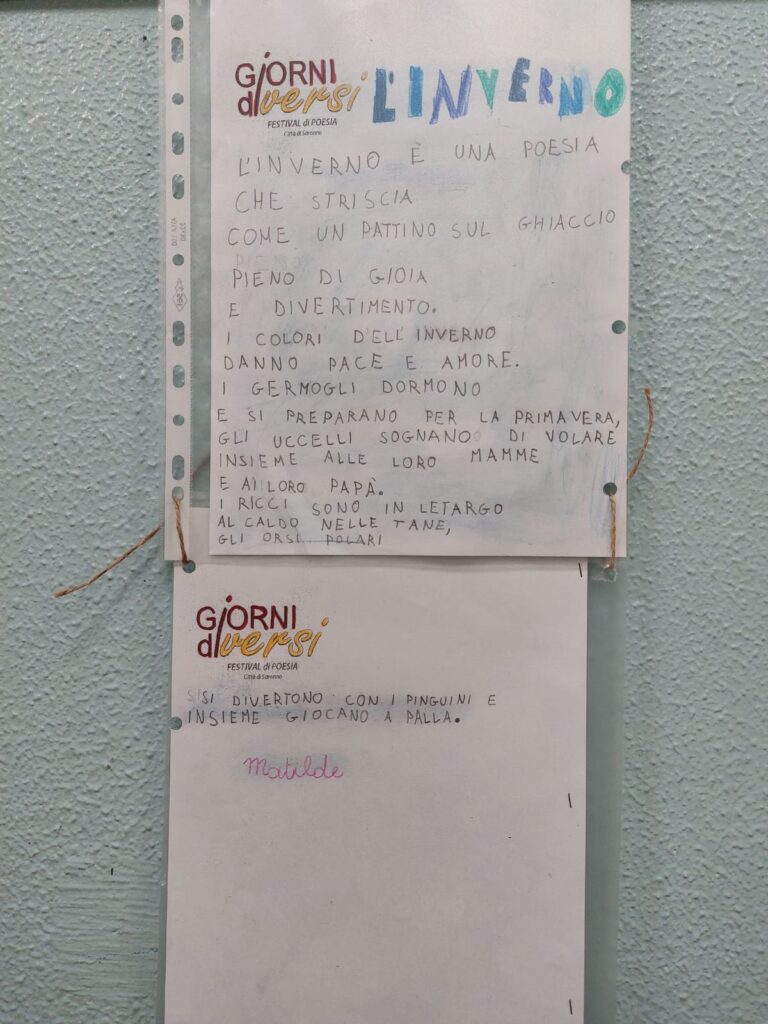 GiORNI
diversi
FESTIVAL di POESIA
Città di Saronno
L'INVERNO
L'INVERNO È UNA POESIA
CHE STRISCIA
COME UN PATTINO SUL GHIACCIO
PIENO DI GIOIA
E DIVERTIMENTO.
I COLORI D'ELL'INVERNO
DANNO PACE E AMORE.
I GERMOGLI DORMONO
E SI PREPARANO PER LA PRIMAVERA,
GLI UCCELLI SOGNANO DI VOLARE
INSIEME ALLE LORO MAMME
E AI LORO PAPÀ.
I RICCI SONO IN LETARGO
AL CALDO NELLE TANE,
GLI ORSI POLARI
GiORNI
diversi
FESTIVAL di POESIA
Città di Saronno
SI DIVERTONO CON I PINGUINI E
INSIEME GIOCANO A PALLA.
Matilde